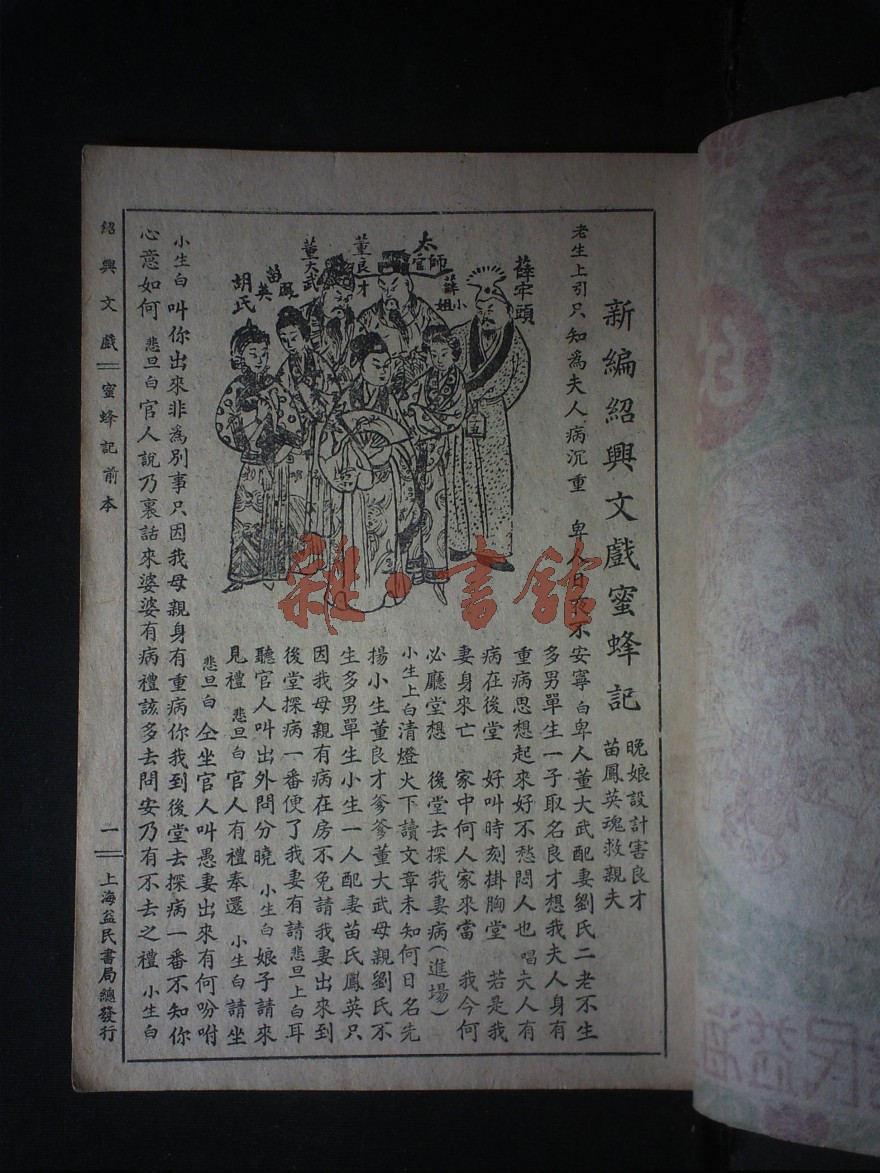 新編紹興文戲蜜蜂記
晚娘設計害良才
苗鳳英魂救親夫
老生上引只知為夫人病沉重　卑人日夜不安寧　白卑人董大武配妻劉氏二老不生
多男單生一子取名良才想我夫人身有
重病思想起來好不愁悶人也　唱夫人有
病在後堂　好叫時刻掛胸堂　若是我
妻身來亡　家中何人家來當　我今何
必廳堂想　後堂去探我妻病(進場)
小生上白清燈火下讀文章未知何日名先
揚小生董良才爹爹董大武母親劉氏不
生多男單生小生一人配妻苗氏鳳英只
因我母親有病在房不免請我妻出來到
後堂探病一番便了我妻有請　悲旦上白耳
聽官人叫出外問分曉　小生白娘子請來
見禮　悲旦白官人有禮奉還　小生白請坐
悲旦白仝坐官人叫愚妻出來有何吩咐
小生白叫你出來非為別事只因我母親身有重病你我到後堂去探病一番不知你
心意如何　悲旦白官人說乃裏話來婆婆有病禮該多去問安乃有不去之禮　小生白
薛牢頭
太師官
薛小姐
董良才
董大武
苗鳳英
胡氏
紹興文戲　蜜蜂記前本
一
上海益民書局總發行
雜·書館